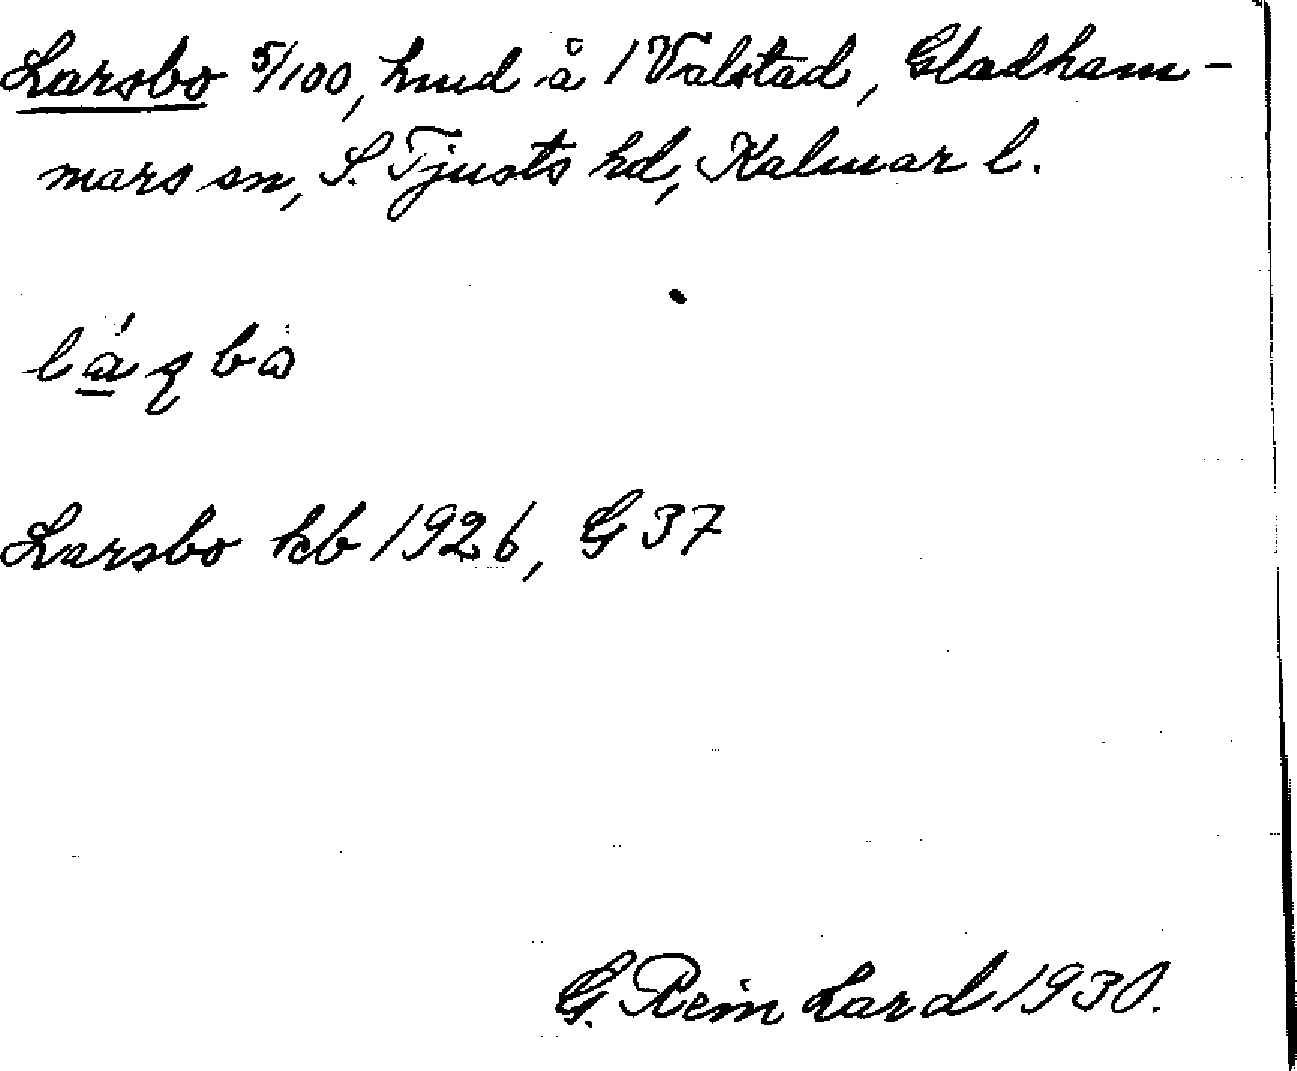 Larsbo 5/100, hmd å 1 Valstad, Gladham-
mars sn, S. Tjusts hd, Kalmar l.
Larsbo kb 1926, G 37
G. Reinhard 1930.